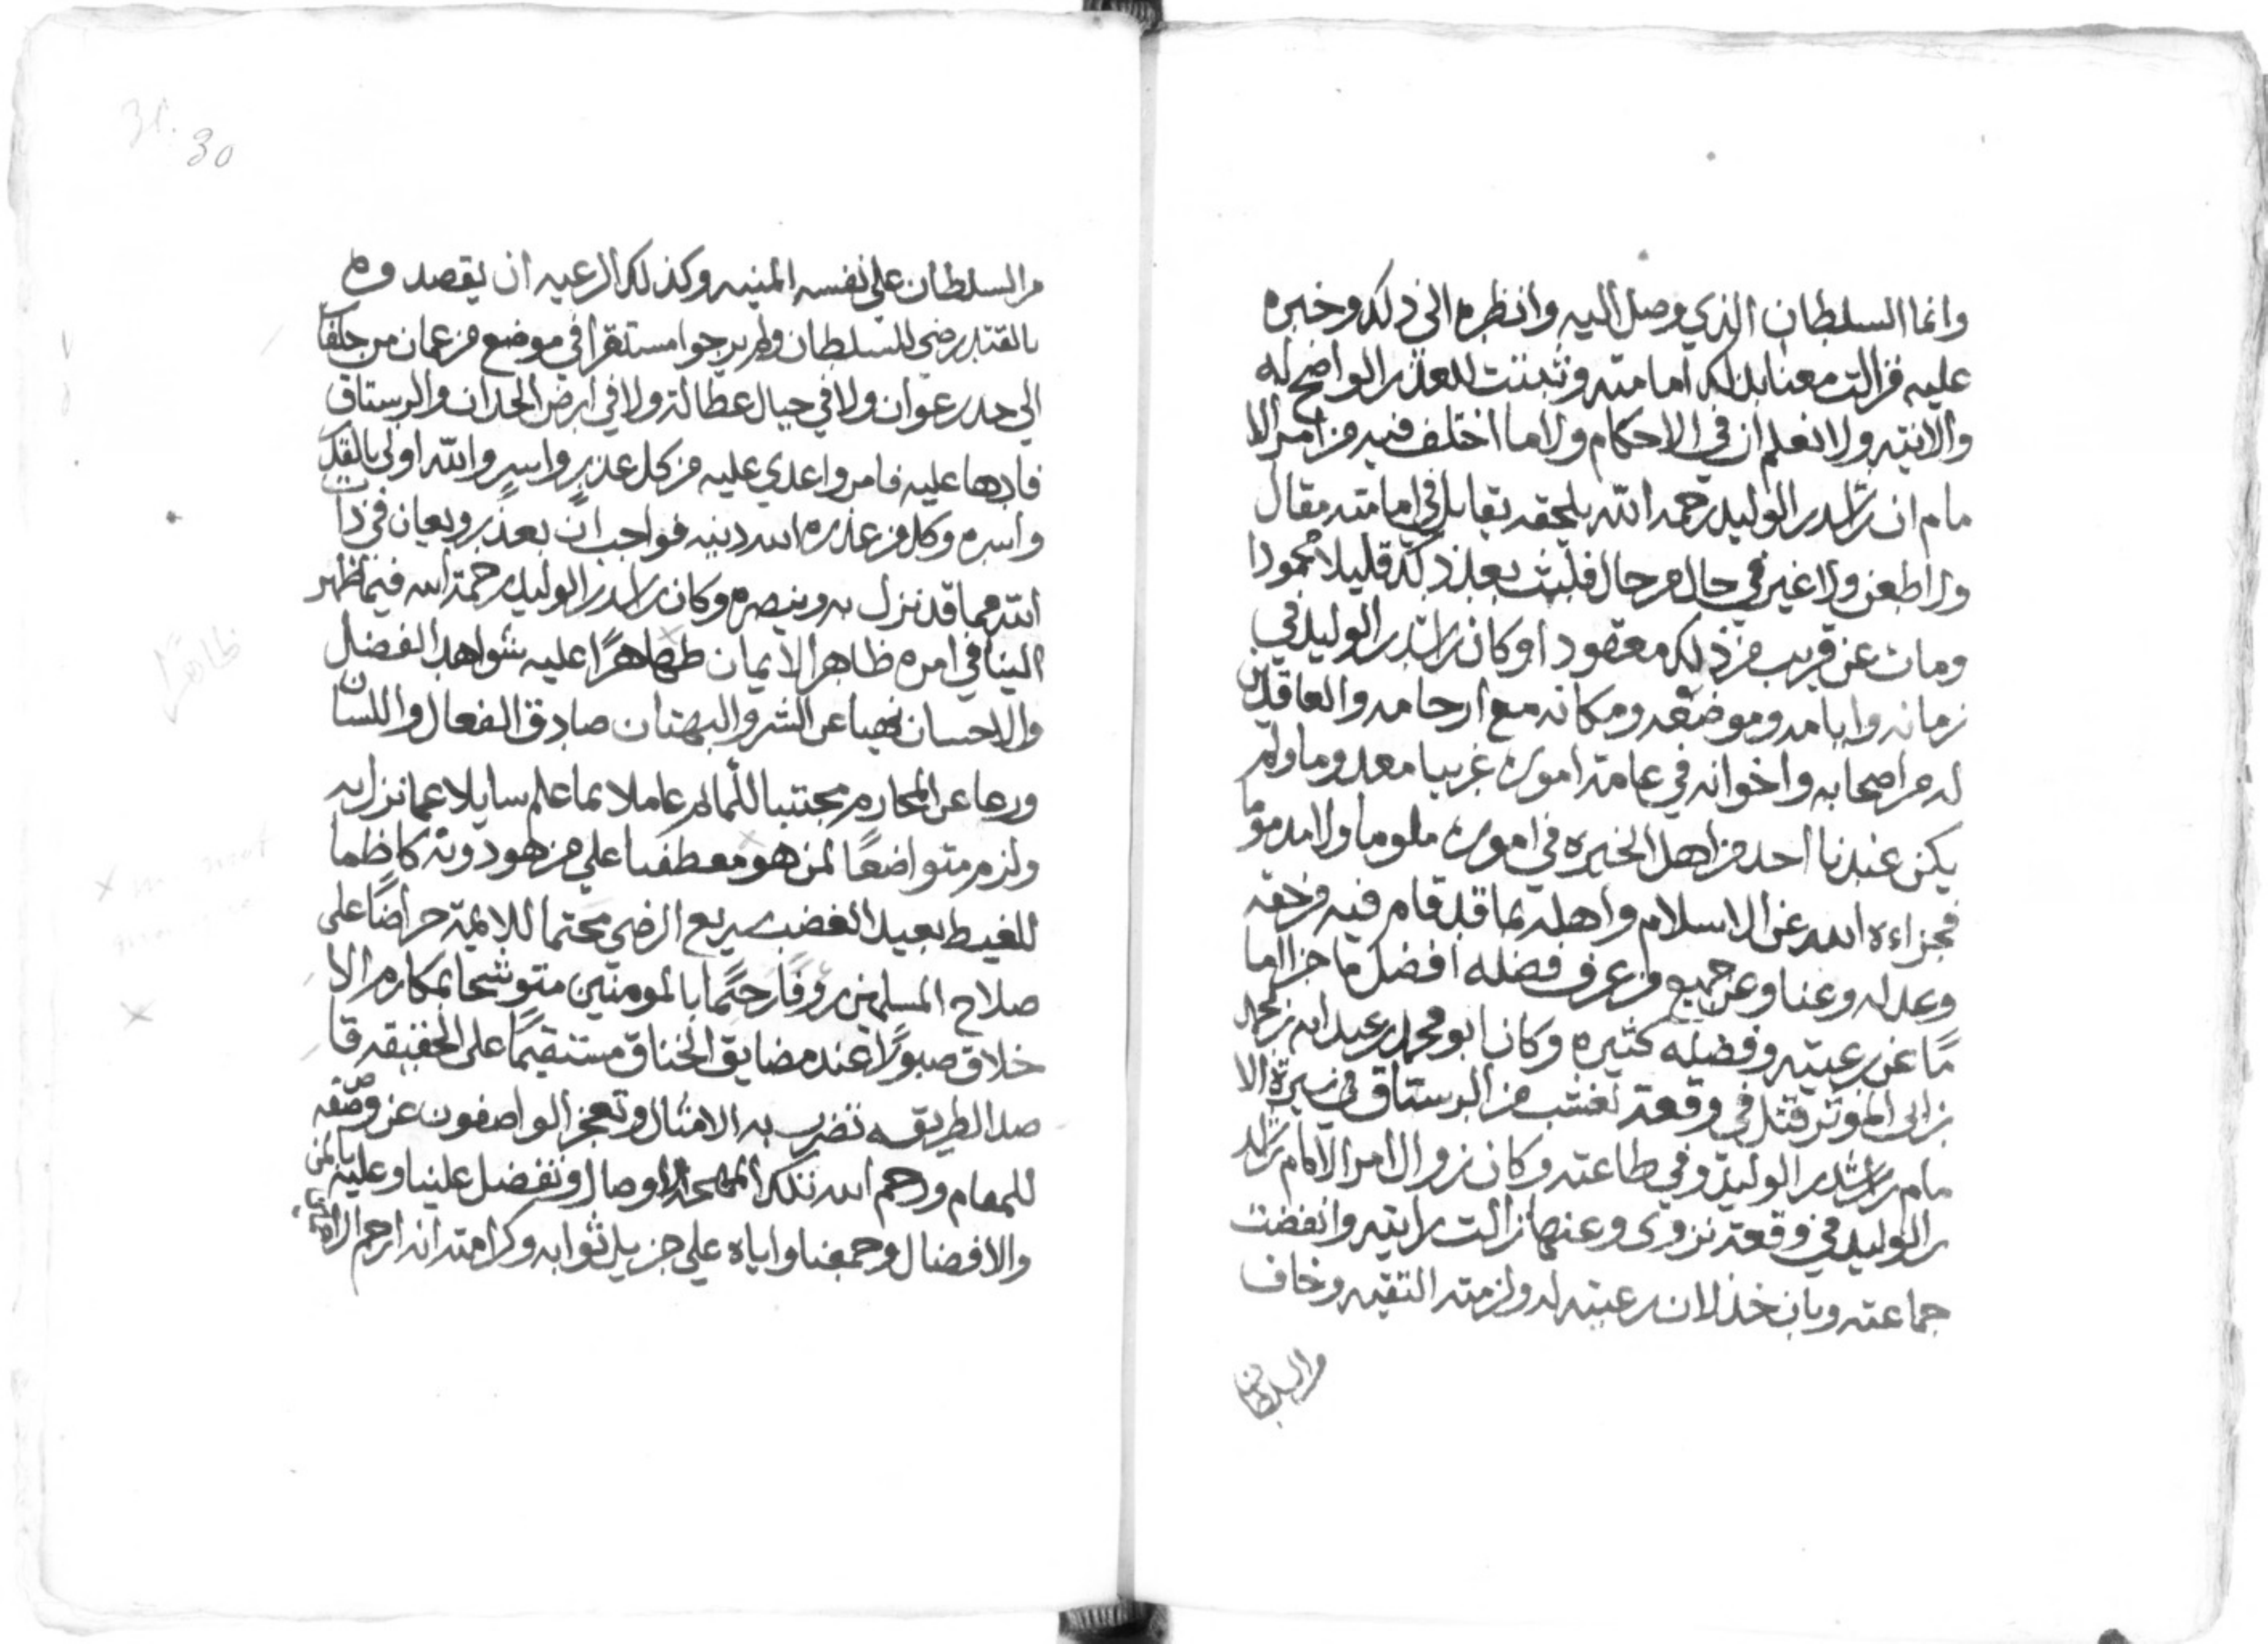 وانما السلطان الذي وصل اليه وانظره الى ذلك وخبره
عليه فزالت معنا بذلك امامته وثبتت للعذر الواضح له
والانيته ولا نعلم ان في الاحكام ولا ما اختلف فيه من امر الا
مام ان راشد بن الوليد رحمه الله يلحقه يقابل في امامته مقال
ولا طعن ولا غير في حال من حال فلبث بعد ذلك قليلا محمودا
ومات عن قريب من ذلك معقودا وكان راشد بن الوليد في
زمانه وايامه وموضعه ومكانه مع ارحامه والعاقدين
له من اصحابه واخوانه في عامة اموره غريبا معدوما ولم
يكن عندنا احد من اهل الخبره في اموره ملوما ولا مدموما
فجزاءه الله عن الاسلام واهله بما قد قام فيه من حقه
وعدله وعنا وعن جميع من عرف فضله افضل ما جزا اما
ما عن رعيته وفضله كثيره وكان ابو محمد بن عبد الله بن محمد
بن ابي الموثر قتل في وقعة لغشب من الرستاق في سيرة الا
مام راشد بن الوليد وفي طاعته وكان زوال امر الامام راشد
بن الوليد في وقعة نزوى وعنها زالت رايته وانفضت
جماعته وبان خذلان رعيته له ولزمته التقيه وخاف
من السلطان
30
من السلطان على نفسه المنيه وكذلك الرعيه ان يقصدوه
بالقتل رضى للسلطان ولم يرجوا مستقرا في موضع من عمان من جلفا
الى حد رعوان ولا في جبال عطالة ولا في ارض الحدان والرستاق
فادها عليه فامر واعدي عليه من كل عذير واسر والله اولى بالقدر
واسره وكل من عذره الله دينه فواجب ان يعذر ويعان في ذات
الله مما قد نزل به وينصره وكان راشد بن الوليد رحمة الله فيما ظهر
الينا في امره ظاهر الايمان ظاهرا عليه شواهد الفضل
والاحسان نهيا عن الشر والبهتان صادق الفعال واللسان
ورعا عن المحارم مجتنبا للماثم عاملا بما علم سايلا عما نزل به
ولزم متواضعا لمن هو معطفيا على من هو دونه كاظما
للغيط بعيد الغضب سريع الرضى محتما للايمة حراضا على
صلاح المسلمين رؤوفا رحيما بالمومنين متوشحا بمكارم الا
خلاق صبورا عند مضايق الخناق مستقيما على الحقيقه قا
صد الطريقه تضرب به الامثال وتعجز الواصفون عن وصفه
للمقام ورحم الله تلك الاوصال وتفضل علينا وعليه بالمن
والافضال وجمعنا واياه على جزيل ثوابه وكرامته انه ارحم الراحمين
ظاهرا